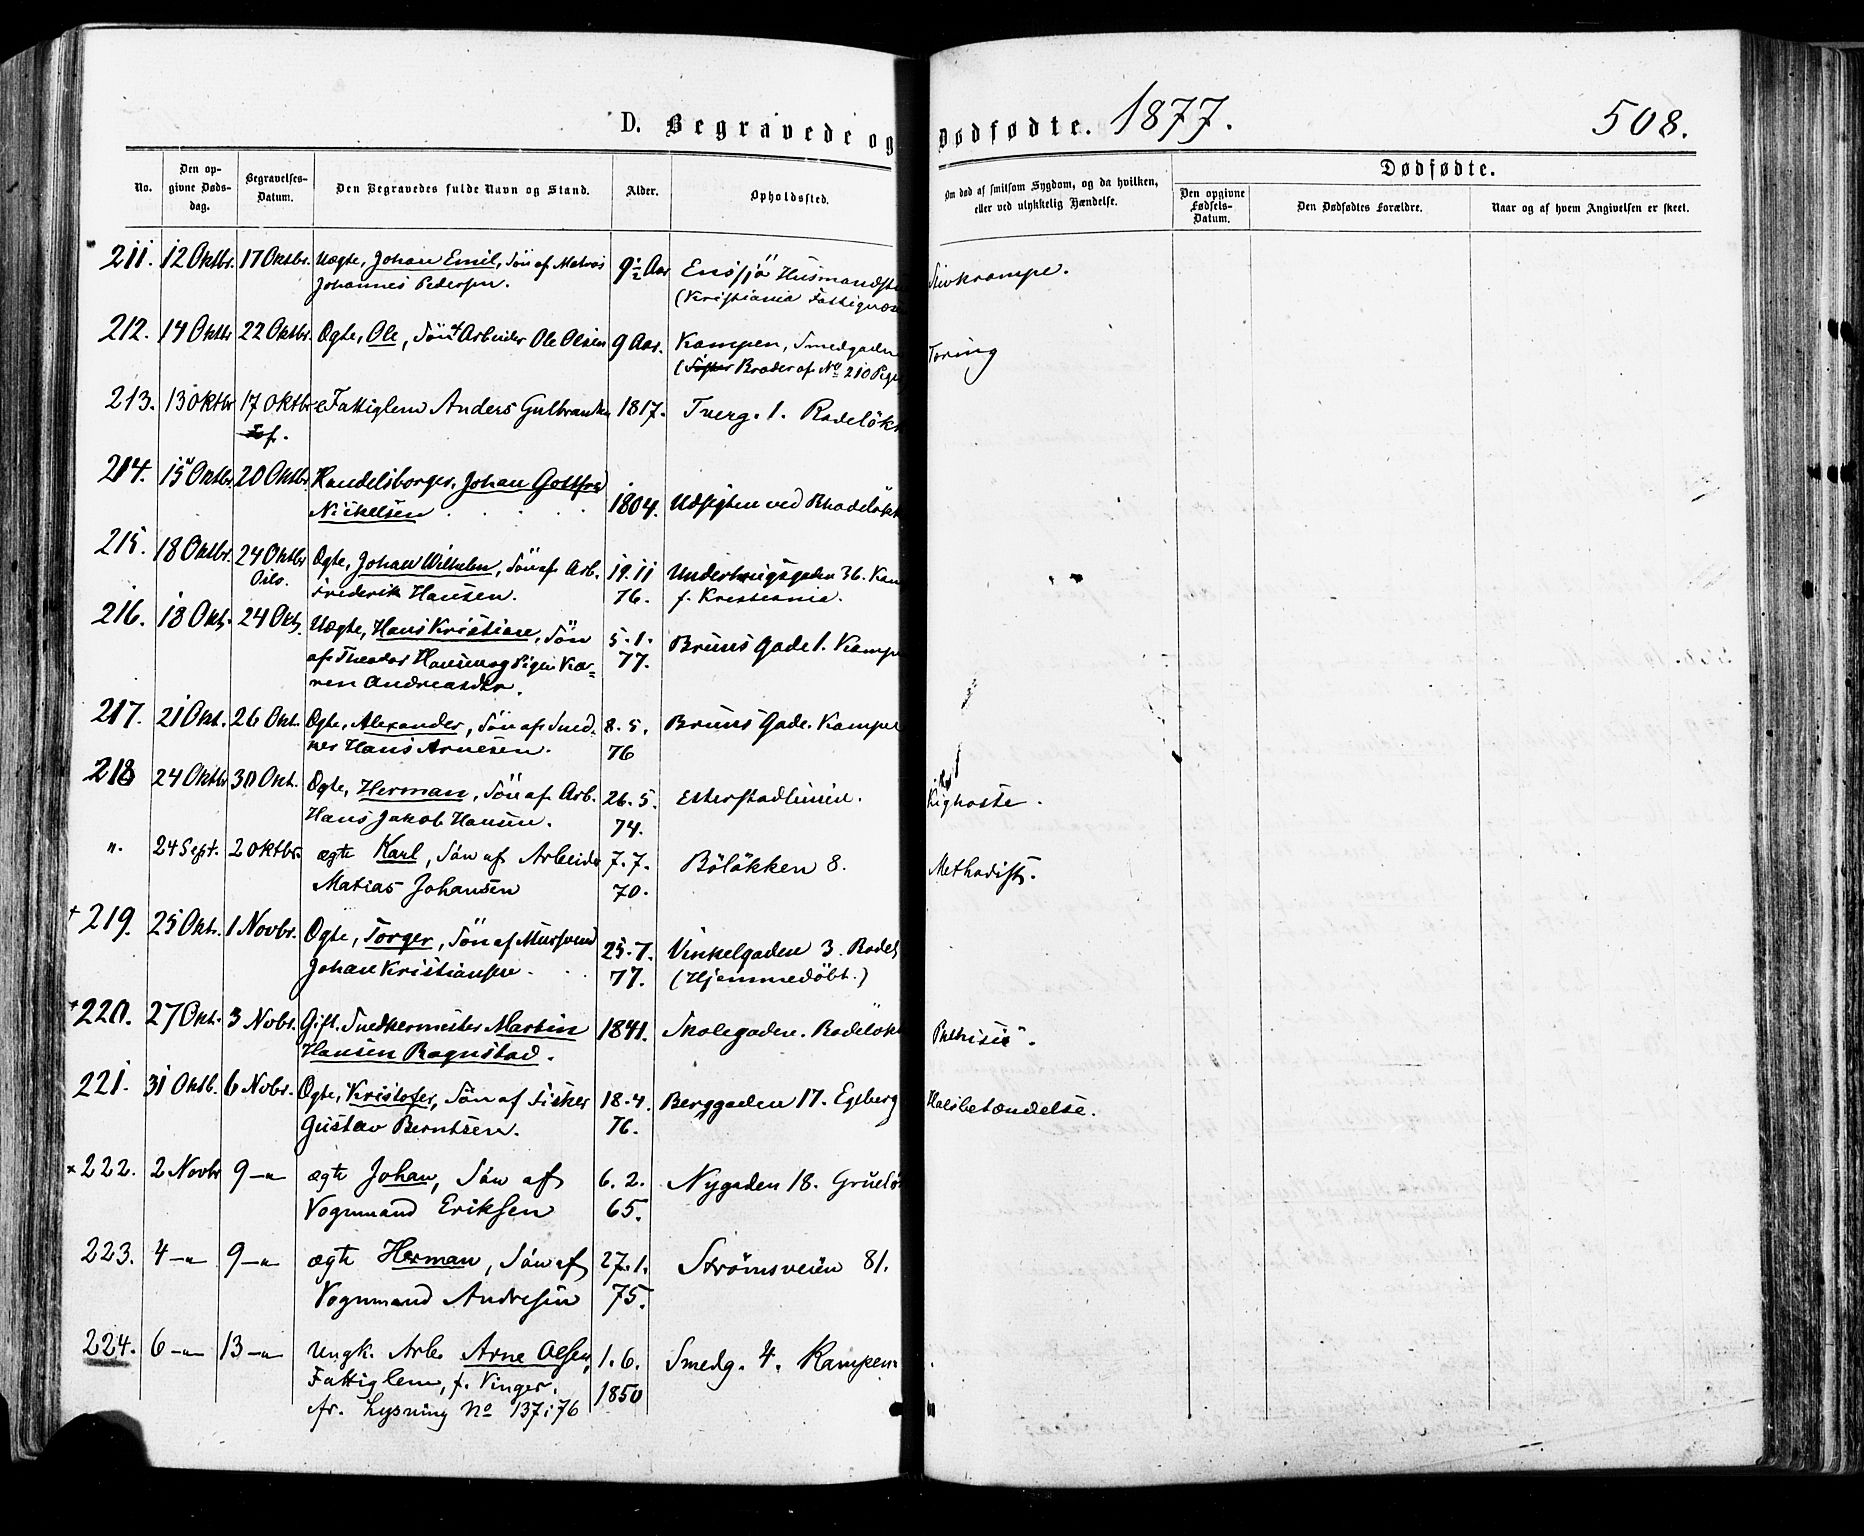 D. Begravede og Dødfødte. 1877. 508.
No. Den opgivne Dødsdag. Begravelses-Datum. Den Begravedes fulde Navn og Stand. Alder. Opholdssted. Om død af smitsom Sygdom, og da hvilken, eller ved ulykkelig Hændelse. Dødfødte.
Den opgivne Fødsels-Datum. Den Dødfødtes Forældre. Naar og af hvem Angivelsen er skeet.
211. 12 Oktbr. 17 Oktbr. Uægte, Johan Emil, Søn af Matros 9½ Aar Ensjø Husmandspl Stivkrampe.
Johannes Pedersen. (Kristiania Fattigvæs
212. 14 Oktbr 22 Oktbr. Ægte, Ole, Søn af Arbeider Ole Olsen 9 Aar. Kampen, Smedgaden Tæring
(Søster Broder af No 210 Pige
213. 13 Oktbr 17 Oktbr Fattiglem Anders Gulbrandsen 1817. Tverg. 1. Rodeløkk
214. 15 Oktbr. 20 Oktbr. Handelsborger, Johan Gottfried
Nickelsen 1804. Udsigten ved Rhodeløkk
215. 18 Oktbr. 24 Oktbr Ægte, Johan Wilhelm, Søn af Arb. 19. 11 Underhaugsgaden 36. Kam
Oslo. Frederik Hansen. 76. f. Kristiania.
216. 18 Okt. 24 Okt. Uægte, Hans Kristian, Søn 5. 1. Bruns Gade 1. Kampe
af Theodor Hansen og Pigen Ka- 77.
ren Andreasdtr.
217. 21 Okt. 26 Okt. Ægte, Alexander, Søn af Sned- 8. 5. Bruns Gade. Kampe
ker Hans Arnesen. 76
218 24 Oktbr 30 Okt. Ægte, Herman, Søn af Arb. 26. 5. Etterstadlinien. Kighoste.
Hans Jakob Hansen. 74.
". 24 Sept. 2 Oktbr. ægte Karl, Søn af Arbeider 7. 7. Bøløkken 8. Methodist.
Matias Johansen 70.
+ 219. 25 Okt. 1 Novbr. Ægte, Torger, Søn af Mursvend 25. 7. Vinkelgaden 3. Rodel
Johan Kristiansen. 77. (Hjemmedøbt.)
+ 220. 27 Okt. 3 Novbr. Gift. Snedkermester Martin 1841. Skolegaden. Rodeløkk Phthisis.
Hansen Rognstad.
221. 31 Oktb. 6 Novbr. Ægte, Kristofer, Søn af Fisker 18. 4. Berggaden 17. Egeberg Halsbetændelse.
Gustav Berntsen. 76.
x 222. 2 Novbr 9 -"- ægte Johan, Søn af 6. 2. Nygaden 18. Grueløk
Vognmand Eriksen 65.
223. 4 -"- 9 -"- ægte Herman, Søn af 27. 1. Strømsveien 81.
Vognmand Andresen 75.
224. 6 -"- 13 -"- Ungk. Arb. Arne Olsen, 1. 6. Smedg. 4. Kampen.
Fattiglem, f. Vinger. 1850
fr. Lysning No 137 i 76